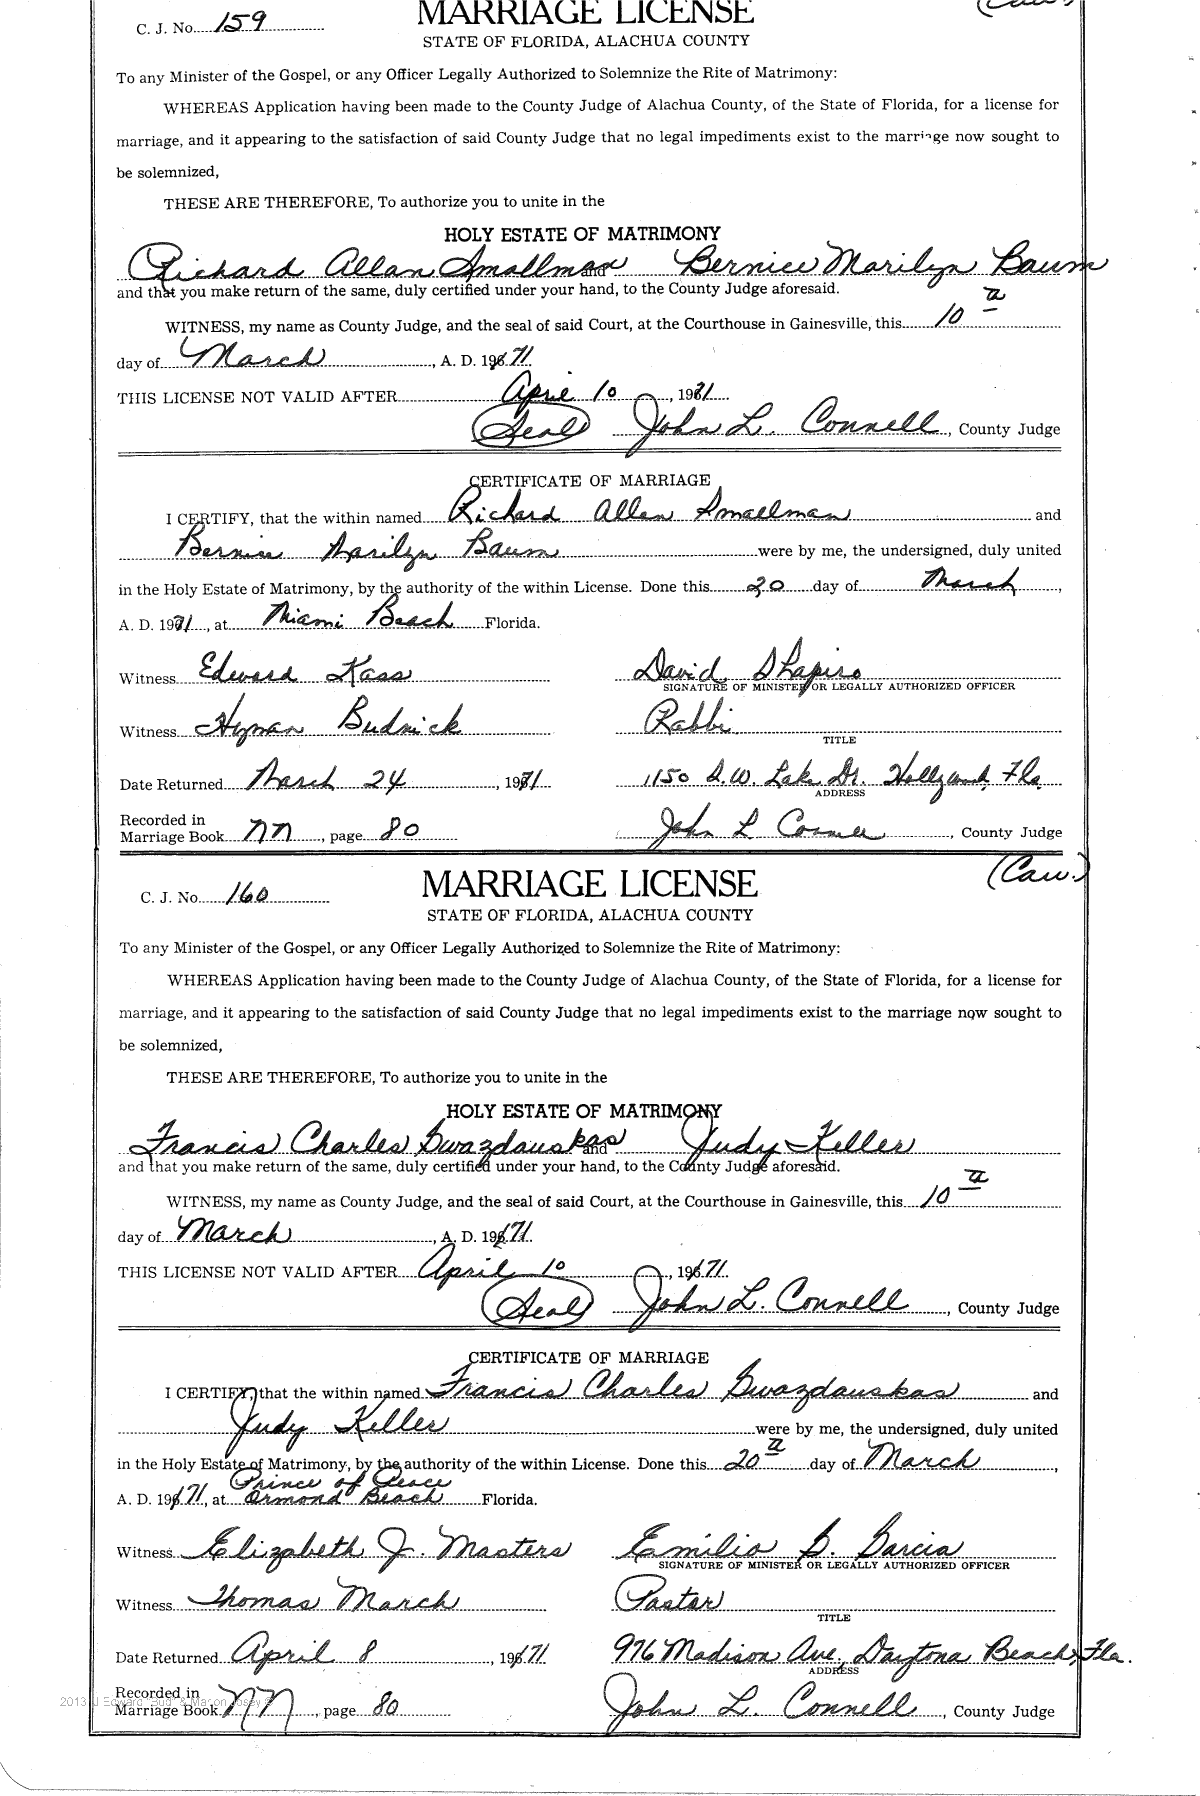 (Cau.)
C. J. No. 159 MARRIAGE LICENSE
STATE OF FLORIDA, ALACHUA COUNTY
To any Minister of the Gospel, or any Officer Legally Authorized to Solemnize the Rite of Matrimony:
WHEREAS Application having been made to the County Judge of Alachua County, of the State of Florida, for a license for
marriage, and it appearing to the satisfaction of said County Judge that no legal impediments exist to the marriage now sought to
be solemnized,
THESE ARE THEREFORE, To authorize you to unite in the
HOLY ESTATE OF MATRIMONY
Richard Allan Smallman and Bernice Marilyn Baum
and that you make return of the same, duly certified under your hand, to the County Judge aforesaid.
WITNESS, my name as County Judge, and the seal of said Court, at the Courthouse in Gainesville, this 10
day of March, A. D. 1971.
THIS LICENSE NOT VALID AFTER April 10, 1971
(Seal) John L. Connell, County Judge
CERTIFICATE OF MARRIAGE
I CERTIFY, that the within named Richard Allen Smallman and
Bernice Marilyn Baum were by me, the undersigned, duly united
in the Holy Estate of Matrimony, by the authority of the within License. Done this 20 day of March,
A. D. 1971, at Miami Beach Florida.
Witness Edward Kass David Shapiro
SIGNATURE OF MINISTER OR LEGALLY AUTHORIZED OFFICER
Witness Hyman Budnick Rabbi
TITLE
Date Returned March 24, 1971 1150 S.W. Lake Dr. Hollywood, Fla.
ADDRESS
Recorded in
Marriage Book NN, page 80 John L Connell, County Judge
(Cau.)
C. J. No. 160 MARRIAGE LICENSE
STATE OF FLORIDA, ALACHUA COUNTY
To any Minister of the Gospel, or any Officer Legally Authorized to Solemnize the Rite of Matrimony:
WHEREAS Application having been made to the County Judge of Alachua County, of the State of Florida, for a license for
marriage, and it appearing to the satisfaction of said County Judge that no legal impediments exist to the marriage now sought to
be solemnized,
THESE ARE THEREFORE, To authorize you to unite in the
HOLY ESTATE OF MATRIMONY
Francis Charles Gwazdauskas and Judy Keller
and that you make return of the same, duly certified under your hand, to the County Judge aforesaid.
WITNESS, my name as County Judge, and the seal of said Court, at the Courthouse in Gainesville, this 10
day of March, A. D. 1971.
THIS LICENSE NOT VALID AFTER April 10, 1971.
(Seal) John L. Connell, County Judge
CERTIFICATE OF MARRIAGE
I CERTIFY, that the within named Francis Charles Gwazdauskas and
Judy Keller were by me, the undersigned, duly united
in the Holy Estate of Matrimony, by the authority of the within License. Done this 20 day of March,
Prince of Peace
A. D. 1971, at Ormond Beach Florida.
Witness Elizabeth J. Masters Emilio G. Garcia
SIGNATURE OF MINISTER OR LEGALLY AUTHORIZED OFFICER
Witness Thomas March Pastor
TITLE
Date Returned April 8, 1971 976 Madison Ave. Daytona Beach, Fla.
ADDRESS
Recorded in
Marriage Book NN, page 80 John L. Connell, County Judge
2013 J Edward "Bud" & Marion Josey ©